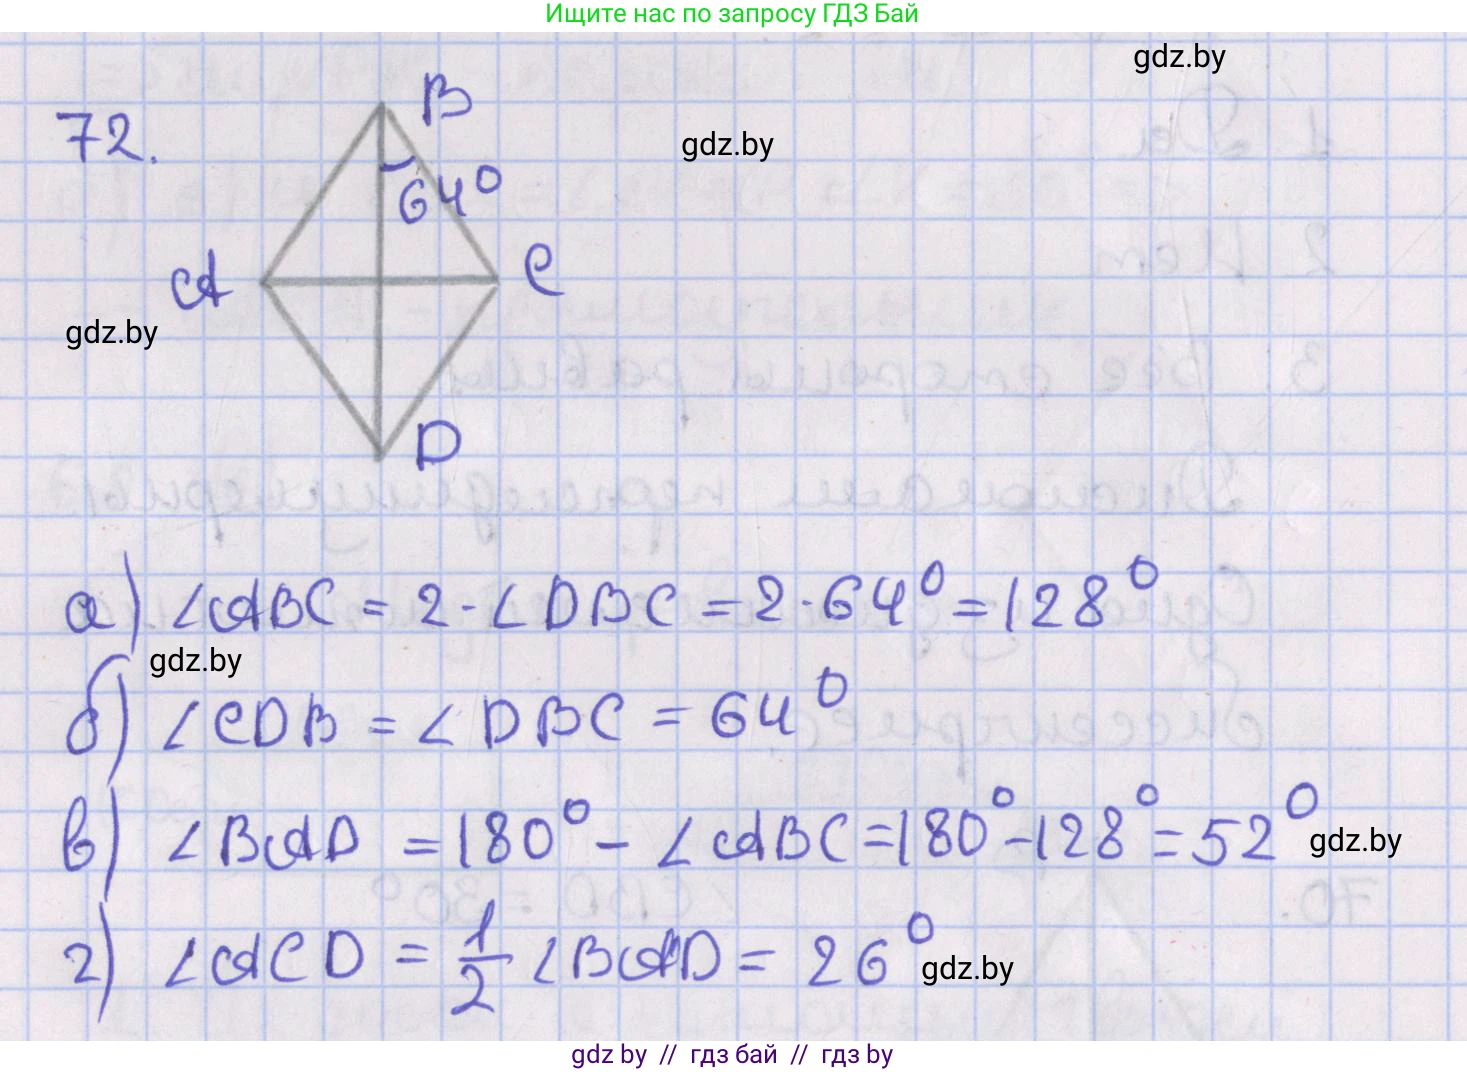 Ищите нас по запросу ГДЗ Бай
gdz.by
72.
B
gdz.by
64°
A
C
gdz.by
D
а) ∠ABC = 2·∠DBC = 2·64° = 128°
gdz.by
б) ∠CDB = ∠DBC = 64°
в) ∠BAD = 180° - ∠ABC = 180° - 128° = 52°
gdz.by
г) ∠ACD = 1/2 ∠BAD = 26°
gdz.by
gdz by // гдз бай // гдз by